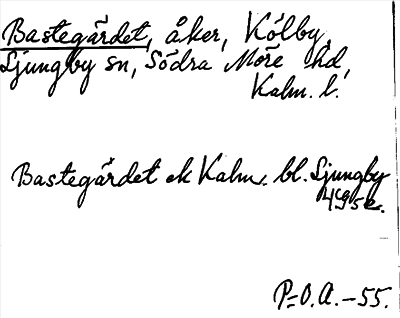 Bastegärdet, åker, Kölby,
Ljungby sn, Södra Möre hd,
Kalm. l.
Bastegärdet ek Kalm. bl. Ljungby
495 e.
P-O.A.-55.